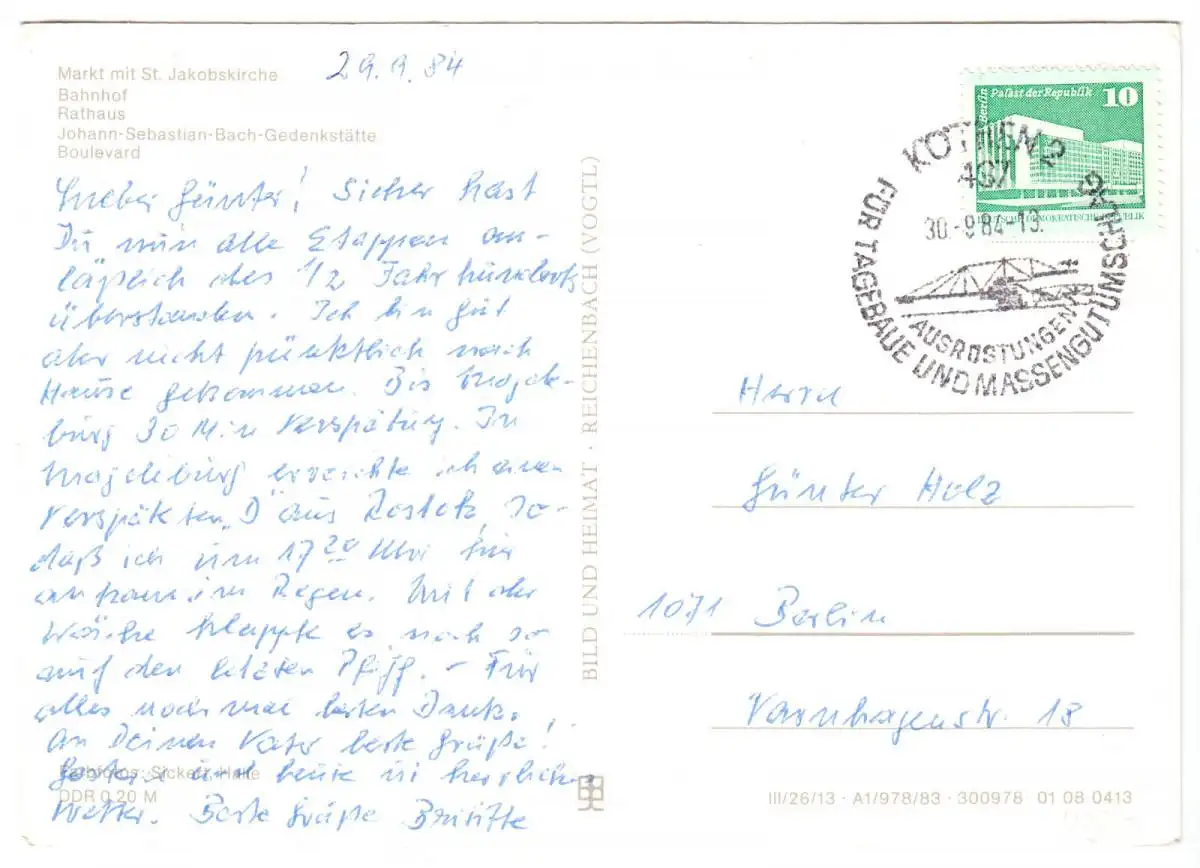 Markt mit St. Jakobskirche
Bahnhof
Rathaus
Johann-Sebastian-Bach-Gedenkstätte
Boulevard
29.9.84
Lieber Günter! Sicher hast
Du nun alle Etappen an-
läßlich des 1/2 Jahrhunderts
überstanden. Ich bin gut
aber nicht pünktlich nach
Hause gekommen. Bis Magde-
burg 30 Min Verspätung. In
Magdeburg erreichte ich einen
verspäteten „D" aus Rostock, so-
daß ich um 17 20 Uhr hier
ankam im Regen. Mit der
Wäsche klappte es noch so
auf den letzten Pfiff. – Für
alles nochmal besten Dank.
An Deinen Vater beste Grüße!
Gestern und heute ist herrliches
Wetter. Beste Grüße Brigitte
Farbfotos: Sickert, Halle
DDR 0,20 M
BILD UND HEIMAT · REICHENBACH (VOGTL)
Berlin Palast der Republik 10
DEUTSCHE DEMOKRATISCHE REPUBLIK
KÖTHEN 2
437
30.-9 84-13.
AUSRÜSTUNGEN
FÜR TAGEBAUE UND MASSENGUTUMSCHLAG
Herrn
Günter Holz
1071 Berlin
Varnhagenstr. 18
III/26/13 · A1/978/83 · 300978 01 08 0413